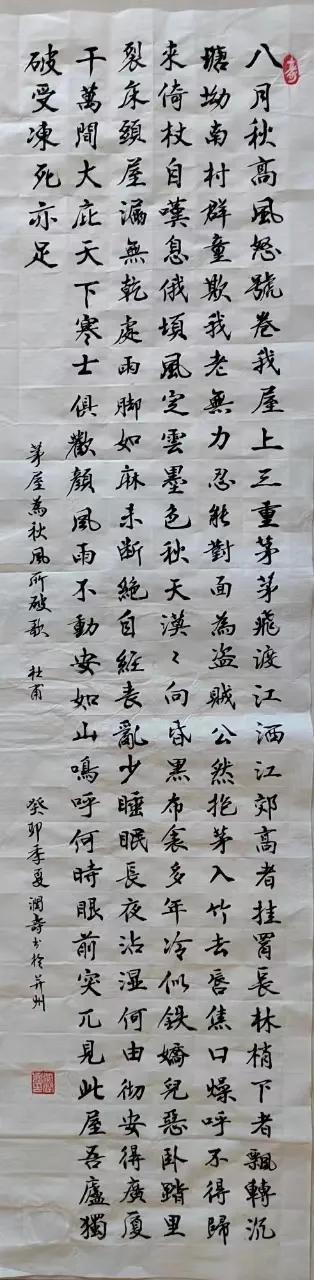 八月秋高風怒號卷我屋上三重茅茅飛渡江洒江郊高者挂罥長林梢下者飄轉沉
塘坳南村群童欺我老無力忍能對面為盜賊公然抱茅入竹去唇焦口燥呼不得歸
來倚杖自嘆息俄頃風定雲墨色秋天漠〻向昏黑布衾多年冷似鉄嬌兒惡卧踏里
裂床頭屋漏無乾處雨脚如麻未斷絕自經喪亂少睡眠長夜沾湿何由彻安得廣厦
千萬間大庇天下寒士俱歡顏風雨不動安如山鳴呼何時眼前突兀見此屋吾廬獨
破受凍死亦足
茅屋為秋風所破歌 杜甫
癸卯季夏潤壽书於并州